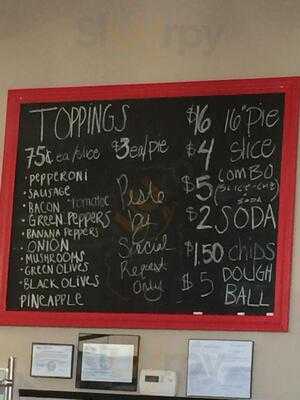 sluurpy
TOPPINGS
75¢ ea/slice $3 ea/pie
• PEPPERONI
• SAUSAGE
• BACON • Tomatoe
• GREEN PEPPERS
• BANANA PEPPERS
• ONION
• MUSHROOMS
• GREEN OLIVES
• BLACK OLIVES
PINEAPPLE
Pesto
by
Special
Request
Only
$16 16" PIE
$4 SLICE
$5 COMBO
SODA
$2 SODA
$1.50 chips
$5 DOUGH
BALL